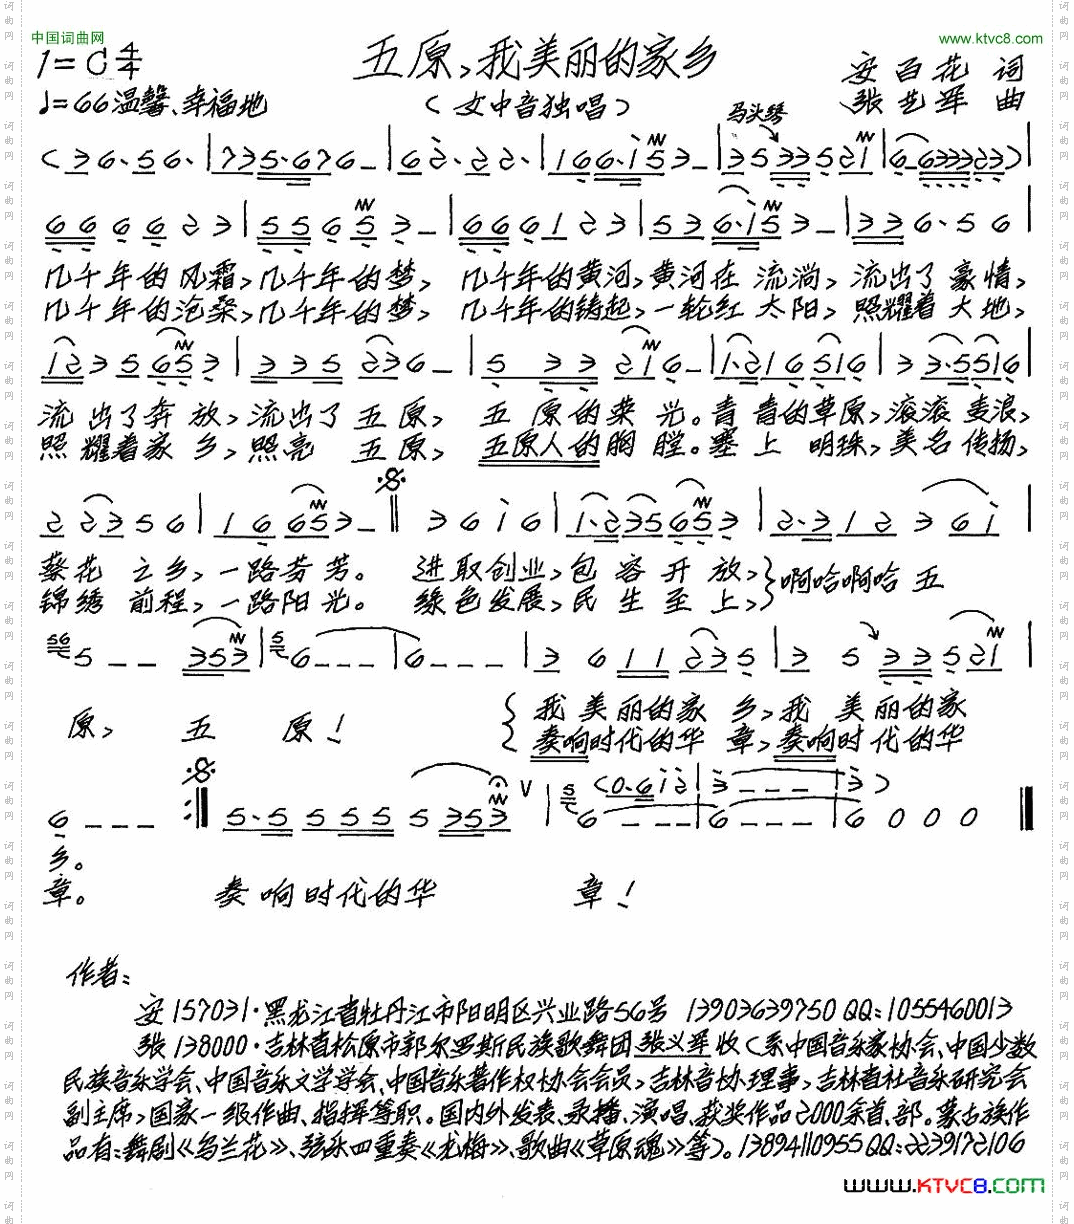 中国词曲网
www.ktvc8.com
1=C 4/4
五原,我美丽的家乡
安百花 词
♩=66 温馨、幸福地
(女中音独唱)
张艺军 曲
马头琴
几千年的风霜,几千年的梦, 几千年的黄河,黄河在 流淌, 流出了 豪情,
几千年的沧桑,几千年的梦, 几千年的铸起,一轮红 太阳, 照耀着 大地,
流 出了奔 放,流出了 五原, 五 原的荣 光。青 青的草原,滚滚 麦浪,
照 耀着家 乡,照亮 五原, 五原人的胸 膛。塞 上 明珠,美名 传扬,
葵花 之乡,一路芬 芳。 进取创业,包 容 开 放, 啊哈啊哈 五
锦绣 前程,一路阳 光。 绿色发展,民 生 至 上,
原, 五 原! 我 美丽的家 乡,我 美丽的家
奏响时代的华 章,奏响时 代的华
乡。
章。 奏响时代的华 章!
作者:
安 157031·黑龙江省牡丹江市阳明区兴业路56号 13903639750 QQ:1055460013
张 138000·吉林省松原市郭尔罗斯民族歌舞团 张义军 收(系中国音乐家协会、中国少数
民族音乐学会、中国音乐文学学会、中国音乐著作权协会会员,吉林音协理事,吉林省社音乐研究会
副主席,国家一级作曲、指挥等职。国内外发表、录播、演唱、获奖作品2000余首、部。蒙古族作
品有:舞剧《乌兰花》、弦乐四重奏《尤梅》、歌曲《草原魂》等)。13894110955 QQ:2239172106
www.KTVC8.com